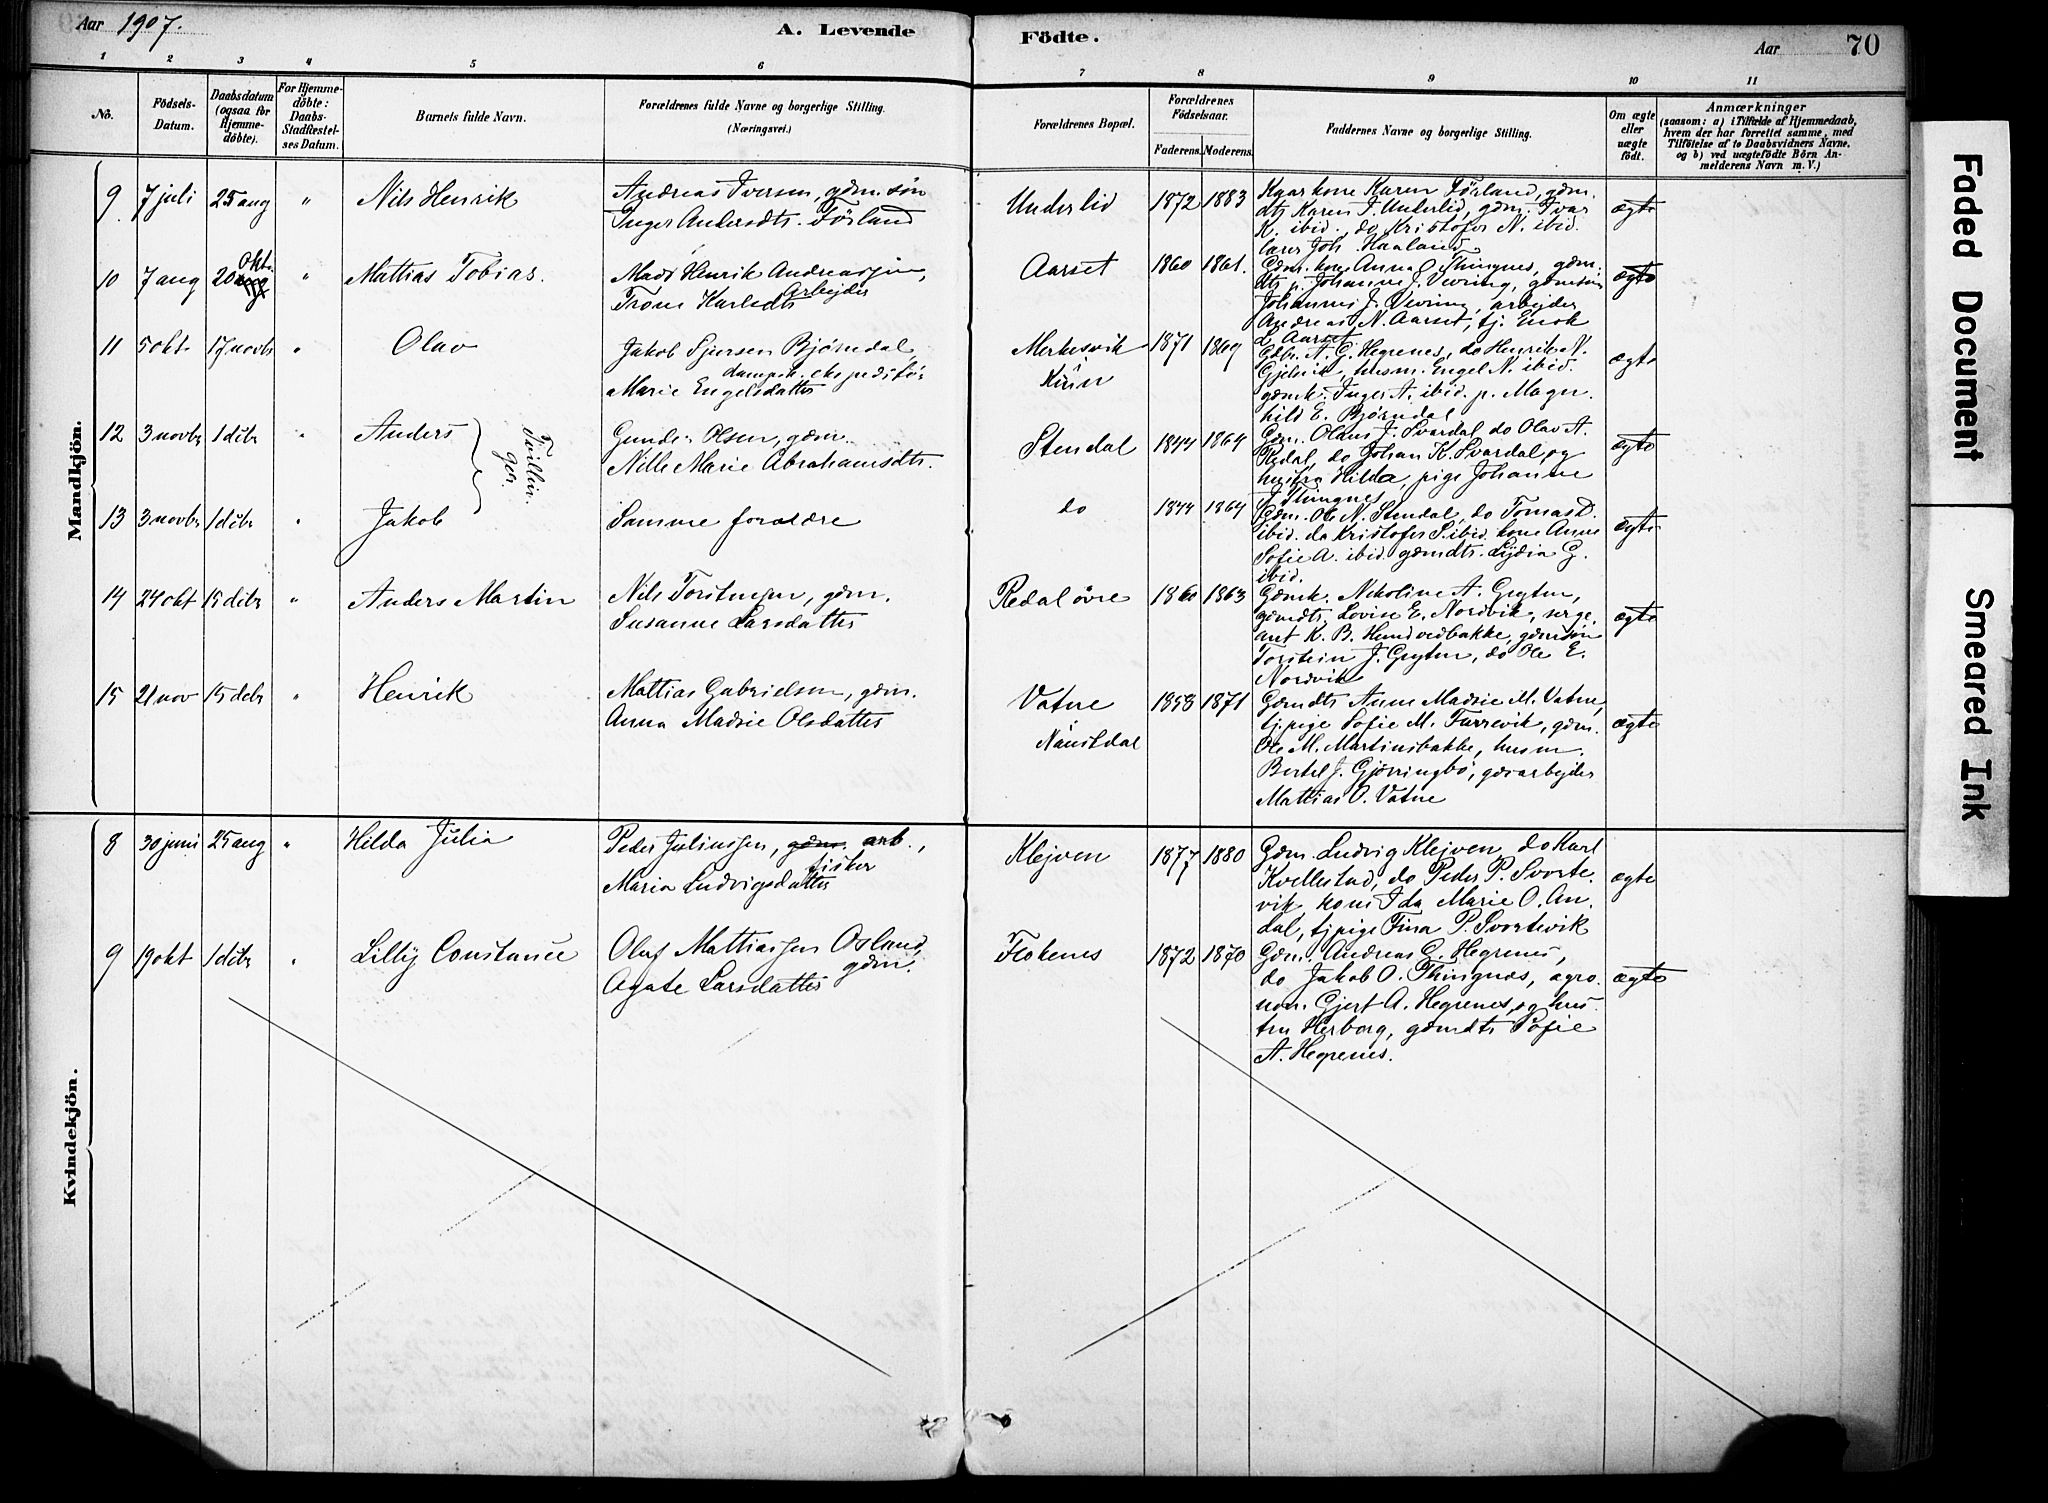 Aar 1907. A. Levende Födte. Aar 70
1 2 3 4 5 6 7 8 9 10 11
No.
Födsels-Datum.
Daabsdatum (ogsaa for Hjemmedöbte).
For Hjemmedöbte: Daabs-Stadfæstelses Datum.
Barnets fulde Navn.
Forældrenes fulde Navne og borgerlige Stilling.
(Næringsvei.)
Forældrenes Bopæl.
Forældrenes Födselsaar.
Faderens. Moderens.
Faddernes Navne og borgerlige Stilling.
Om ægte eller uægte födt.
Anmærkninger
(saasom: a) i Tilfælde af Hjemmedaab,
hvem der har forrettet samme, med
Tilföielse af to Daabsvidners Navne,
og b) ved uægtefödte Börn Anmelderens Navn m. V.)
Mandkjön.
9 7 juli 25 aug " Nils Henrik
Andreas Iversen, gdm. søn
Inger Andersdtr. Förland
Underlid 1872 1883
Kaarkone Karen Förland, gdm.
dtr Karen I. Underlid, gdm. Ivar
K. ibid., do Kristofer N. ibid.
lærer Joh. Haaland
ægte
10 7 ang 20 okt. aug " Mattias Tobias.
Mads Henrik Andreassen,
Arbejder
Trone Karlsdtr
Aarset 1860 1861.
Gdm. kone Anna O Thingnes, gdm.
dtr p. Johanne J. Vevring, gdmsøn
Johannes J. Vevring, arbejder
Andreas N. Aarset, tj. Enok
L. Aarset
ægte
11 5 okt. 17 novbr " Olav
Jakob Sjursen Bjørndal,
dampsk. ekspeditör
Marie Engelsdatter
1871 1869
Gdbr. A. G. Hegrenes, do Henrik N.
Gjelsvik, husm. Engel N. ibid.
gdmk. Inger A. ibid. p. Magnhild E. Bjørndal
ægte
12 3 novbr 1 debr " Anders
Tvillinger.
Olsen, gdm.
Nille Marie Abrahamsdtr.
Stendal 1844 1864
Gdm. Olaus J. Svardal do Olav A.
Redal, do Johan K. Svardal og
hustru Hilda, pige Johanne
J Thingnes
ægte
13 3 novbr 1 debr " Jakob
Samme forældre
do 1844 1864
Gdm. Ole N. Stendal, do Tomas D.
ibid. do Kristofer S. ibid. kone Anne
Sofie A. ibid. gdmdtr. Lydia G.
ibid.
ægte
14 24 okt 15 debr " Anders Martin
Nils Torstensen, gdm.
Susanne Larsdatter
Redal övre 1860 1863
Gdmk. Nikoline A. Gryten,
gdmdtr. Lovise E. Nordvik, sergeant K. B. Hundvedbakke, gdmsön
Torstein J. Gryten, do Ole E.
Nordvik
ægte
15 21 nov 15 debr " Henrik
Mattias Gabrielsen, gdm.
Anna Madsie Olsdatter
Vatne
Naustdal
1853 1871
Gdmdtr Anne Madsie M. Vatne,
tj. pige Sofie M. Furrevik, gdm.
Ole M. Martinsbakke, husm.
Bertel J. Gjörringbö, gdrarbejder
Mattias O. Vatne
ægte
Kvindekjön.
8 30 juni 25 aug " Hilda Julia
Peder Juliussen, gdm. arb.,
fisker
Maria Ludvigsdatter
Klejven 1877 1880
Gdm. Ludvig Klejven, do Karl
Kvellestad, do Peder P. Svortevik kone Ida Marie O. Andal, tj pige Fina P. Svortevik
ægte
9 19 okt 1 debr " Lilly Constance
Oluf Mattiassen Osland,
gdm.
Agate Larsdatter
Flokenes 1872 1870
Gdm. Andreas G. Hegrenes,
do Jakob O. Thingnæs, agronom. Gjert A. Hegrenes, og hustru Herborg, gdmdtr Sofie
A. Hegrenes.
ægte
Faded Document
Smeared Ink